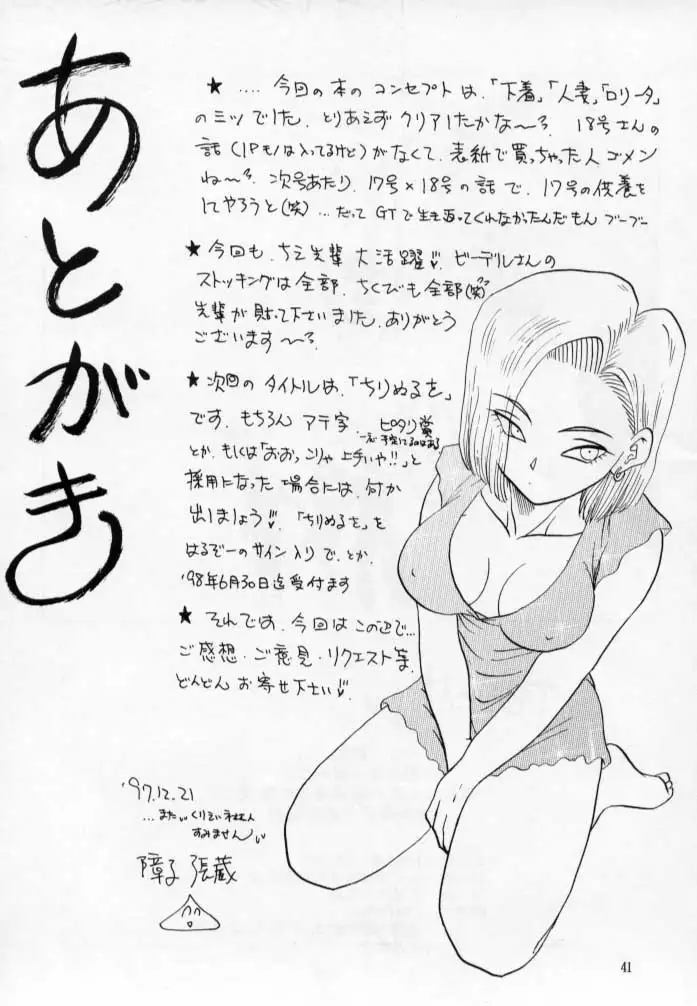 あとがき
★ .... 今回の本のコンセプトは、「下着」、「人妻」、「ロリータ」
のミツでした、とりあえずクリアしたかな〜?。 18号さんの
話(1Pモノは入ってるけど)がなくて、表紙で買っちゃった人ゴメン
ね〜?。次号あたり、17号×18号の話で、17号の供養を
してやろうと(笑)...だって GTで生き返ってくれなかったんだもん ブーブー
★ 今回も、ちえ先輩 大活躍。ビーデルさんの
ストッキングは全部、ちくびも全部(笑)
先輩が貼って下さいました、ありがとう
ございます〜?。
★ 次回のタイトルは、「ちりぬるを」
です、もちろん アテ字、ピタリ賞
とか、もしくは「おおっこりゃ上手いや!!」と
採用になった場合には、何か
出しましょう。「ちりぬるを」を
はるぞーのサイン入りで、とか、
'98年6月30日迄受付ます
★ それでは、今回はこの辺で...
ご感想・ご意見・リクエスト等、
どんどんお寄せ下さい。
'97.12.21
...また
すみません
障子 張蔵
41